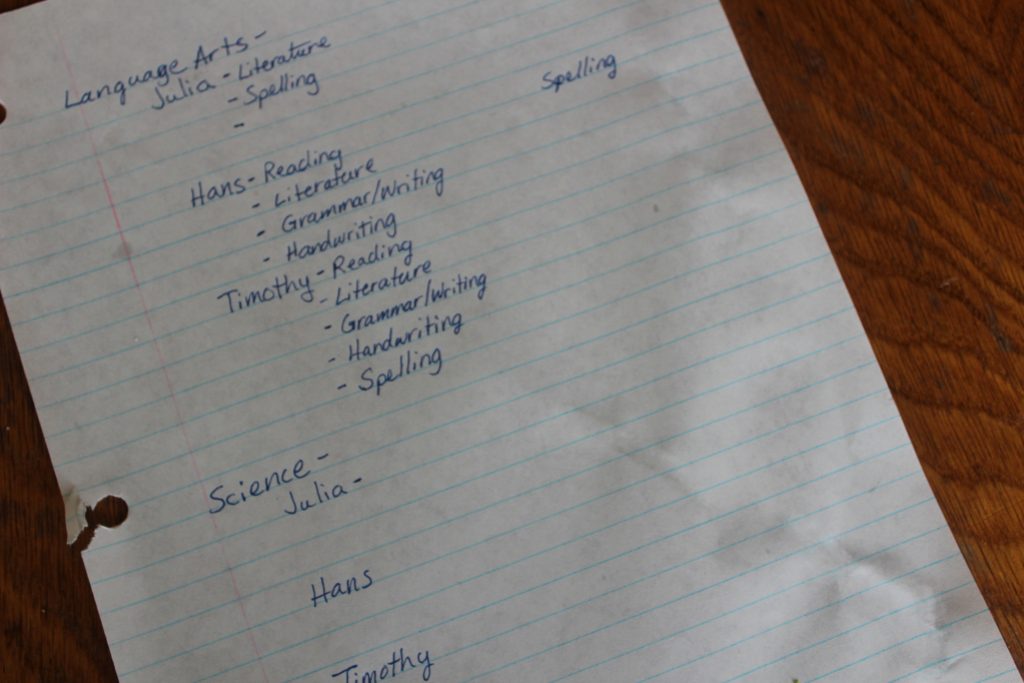 Language Arts-
Julia - Literature
- Spelling
Spelling
-
Hans- Reading
- Literature
- Grammar/Writing
- Handwriting
Timothy - Reading
- Literature
- Grammar/Writing
- Handwriting
- Spelling
Science -
Julia -
Hans
Timothy